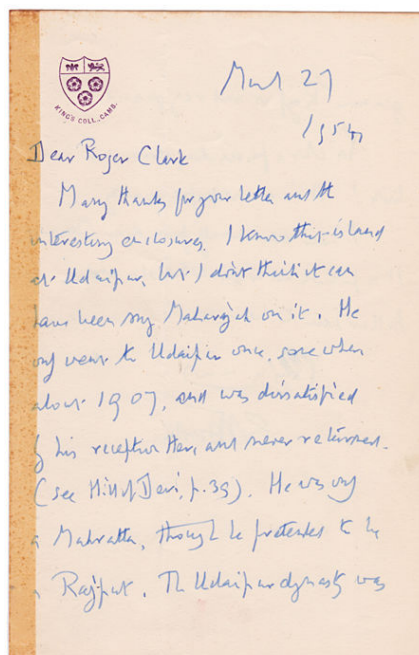 KING'S COLL., CAMB.
March 27
1954
Dear Roger Clark
Many thanks for your letter and the
interesting enclosures. I know the island
at Udaipur, but I don't think it can
have been my Maharajah on it. He
only went to Udaipur once, some when
about 1907, and was dissatisfied
by his reception there, and never returned.
(see Hill of Devi, p. 39). He was only
a Mahratta, though he pretended to be
a Rajput. The Udaipur dynasty was